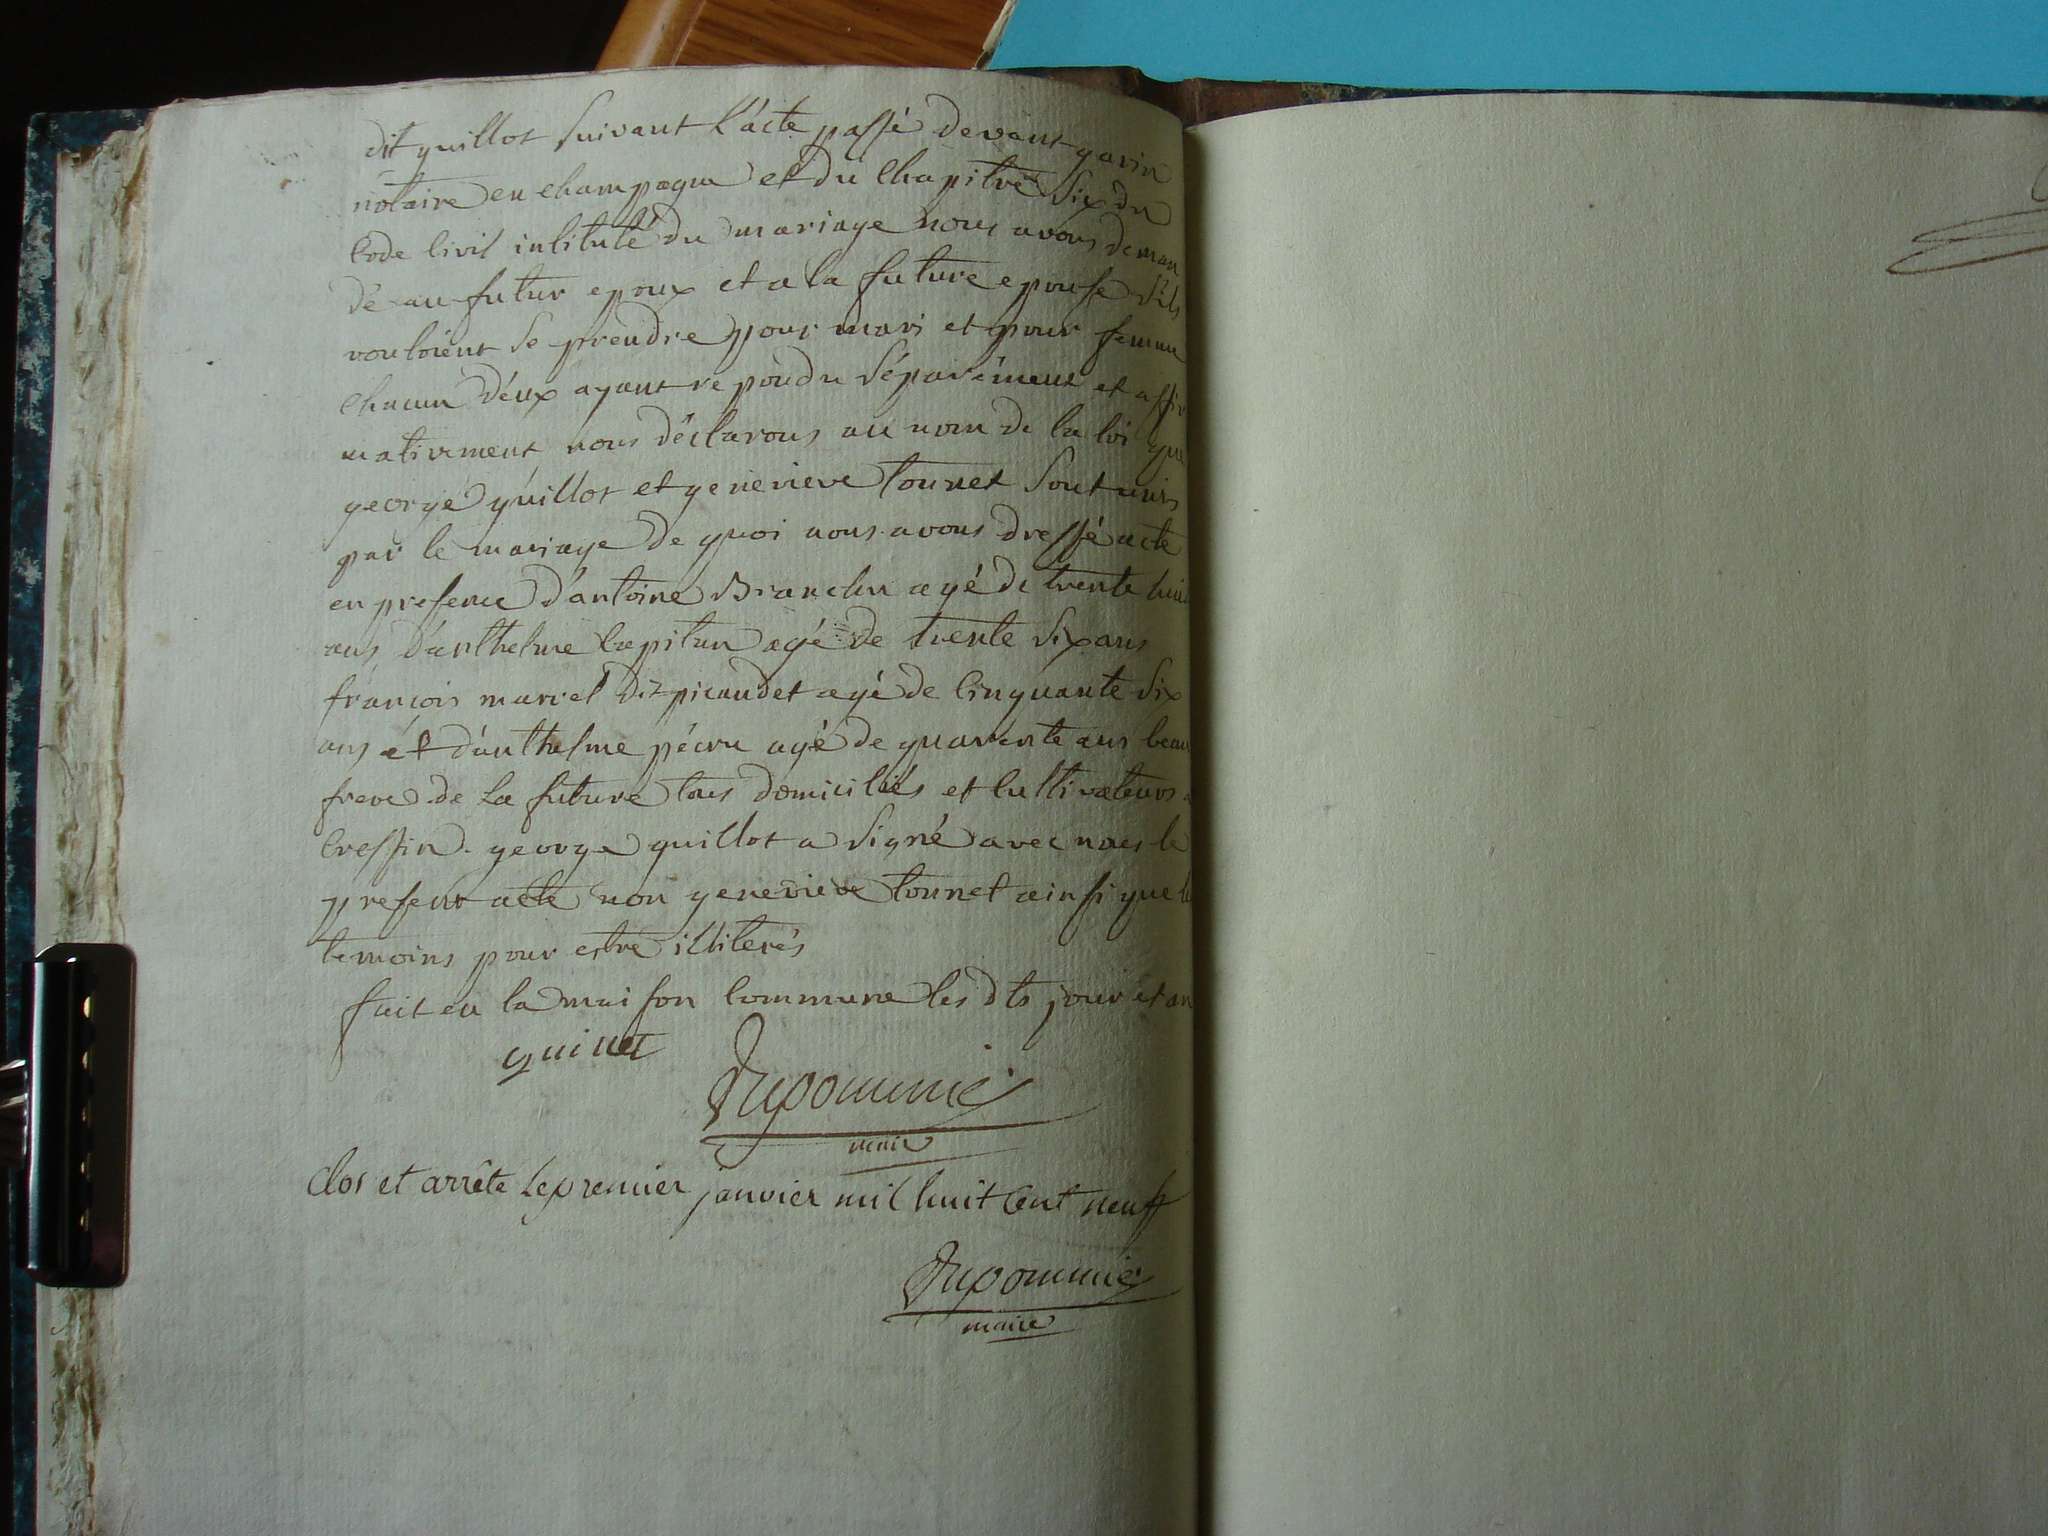 dit guillot suivant l'acte passé devant garin
notaire en champagne et du Chapitre six du
Code Civil intitulé du mariage nous avons deman
dé au futur epoux et a la future epouse s'ils
vouloient se prendre pour mari et pour femme
chacun d'eux ayant repondu séparément et affir
mativement nous déclarons au nom de la loi que
george guillot et genevieve tournet sont unis
par le mariage de quoi nous avons dressé acte
en presence d'antoine Branche agé de trente huit
ans d'anthelme Capitan agé de trente six ans
françois marcel dit picaudet agé de Cinquante six
ans et d'anthelme pécru agé de quarente ans beau
frere de la future tous domiciliés et Cultivateurs a
Cressin. george guillot a signé avec nous le
present acte non genevieve tournet ainsi que le
temoins pour estre illiterés
fait en la maison Commune les dts jour et an
Dupommié
maire
Clos et arrête Le premier janvier mil huit Cent neuf
Dupommié
maire